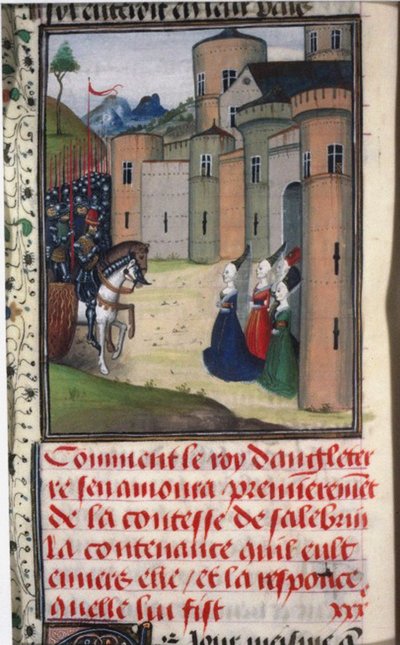 Comment le roy dangleter
re senamoura premierement
de la contesse de salebrin
la contenance quil eult
enuers elle / et la responce
quelle lui fist xxx